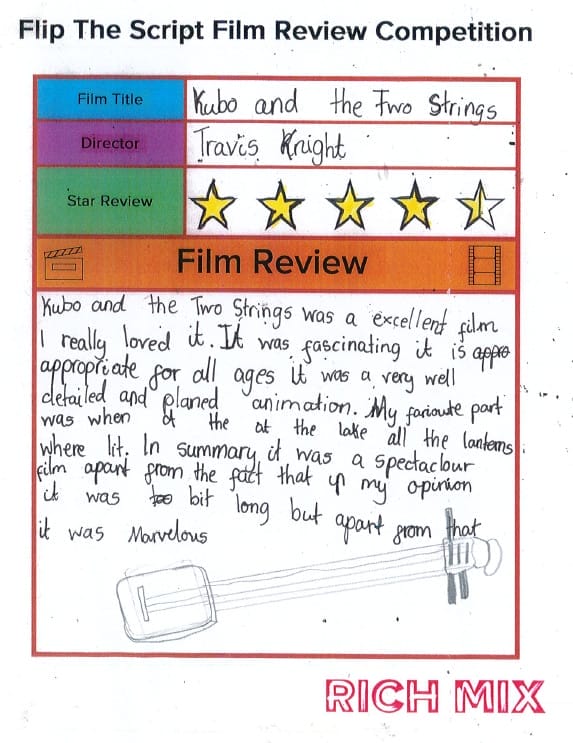 Flip The Script Film Review Competition
Film Title Kubo and the Two Strings
Director Travis Knight
Star Review
Film Review
Kubo and the Two Strings was a excellent film
I really loved it. It was fascinating it is appro
appropriate for all ages it was a very well
detailed and planed animation. My farioute part
was when at the at the lake all the lanterns
where lit. In summary it was a spectaclour
film apart from the fact that in my opinion
it was too bit long but apart from that
it was Marvelous
RICH MIX